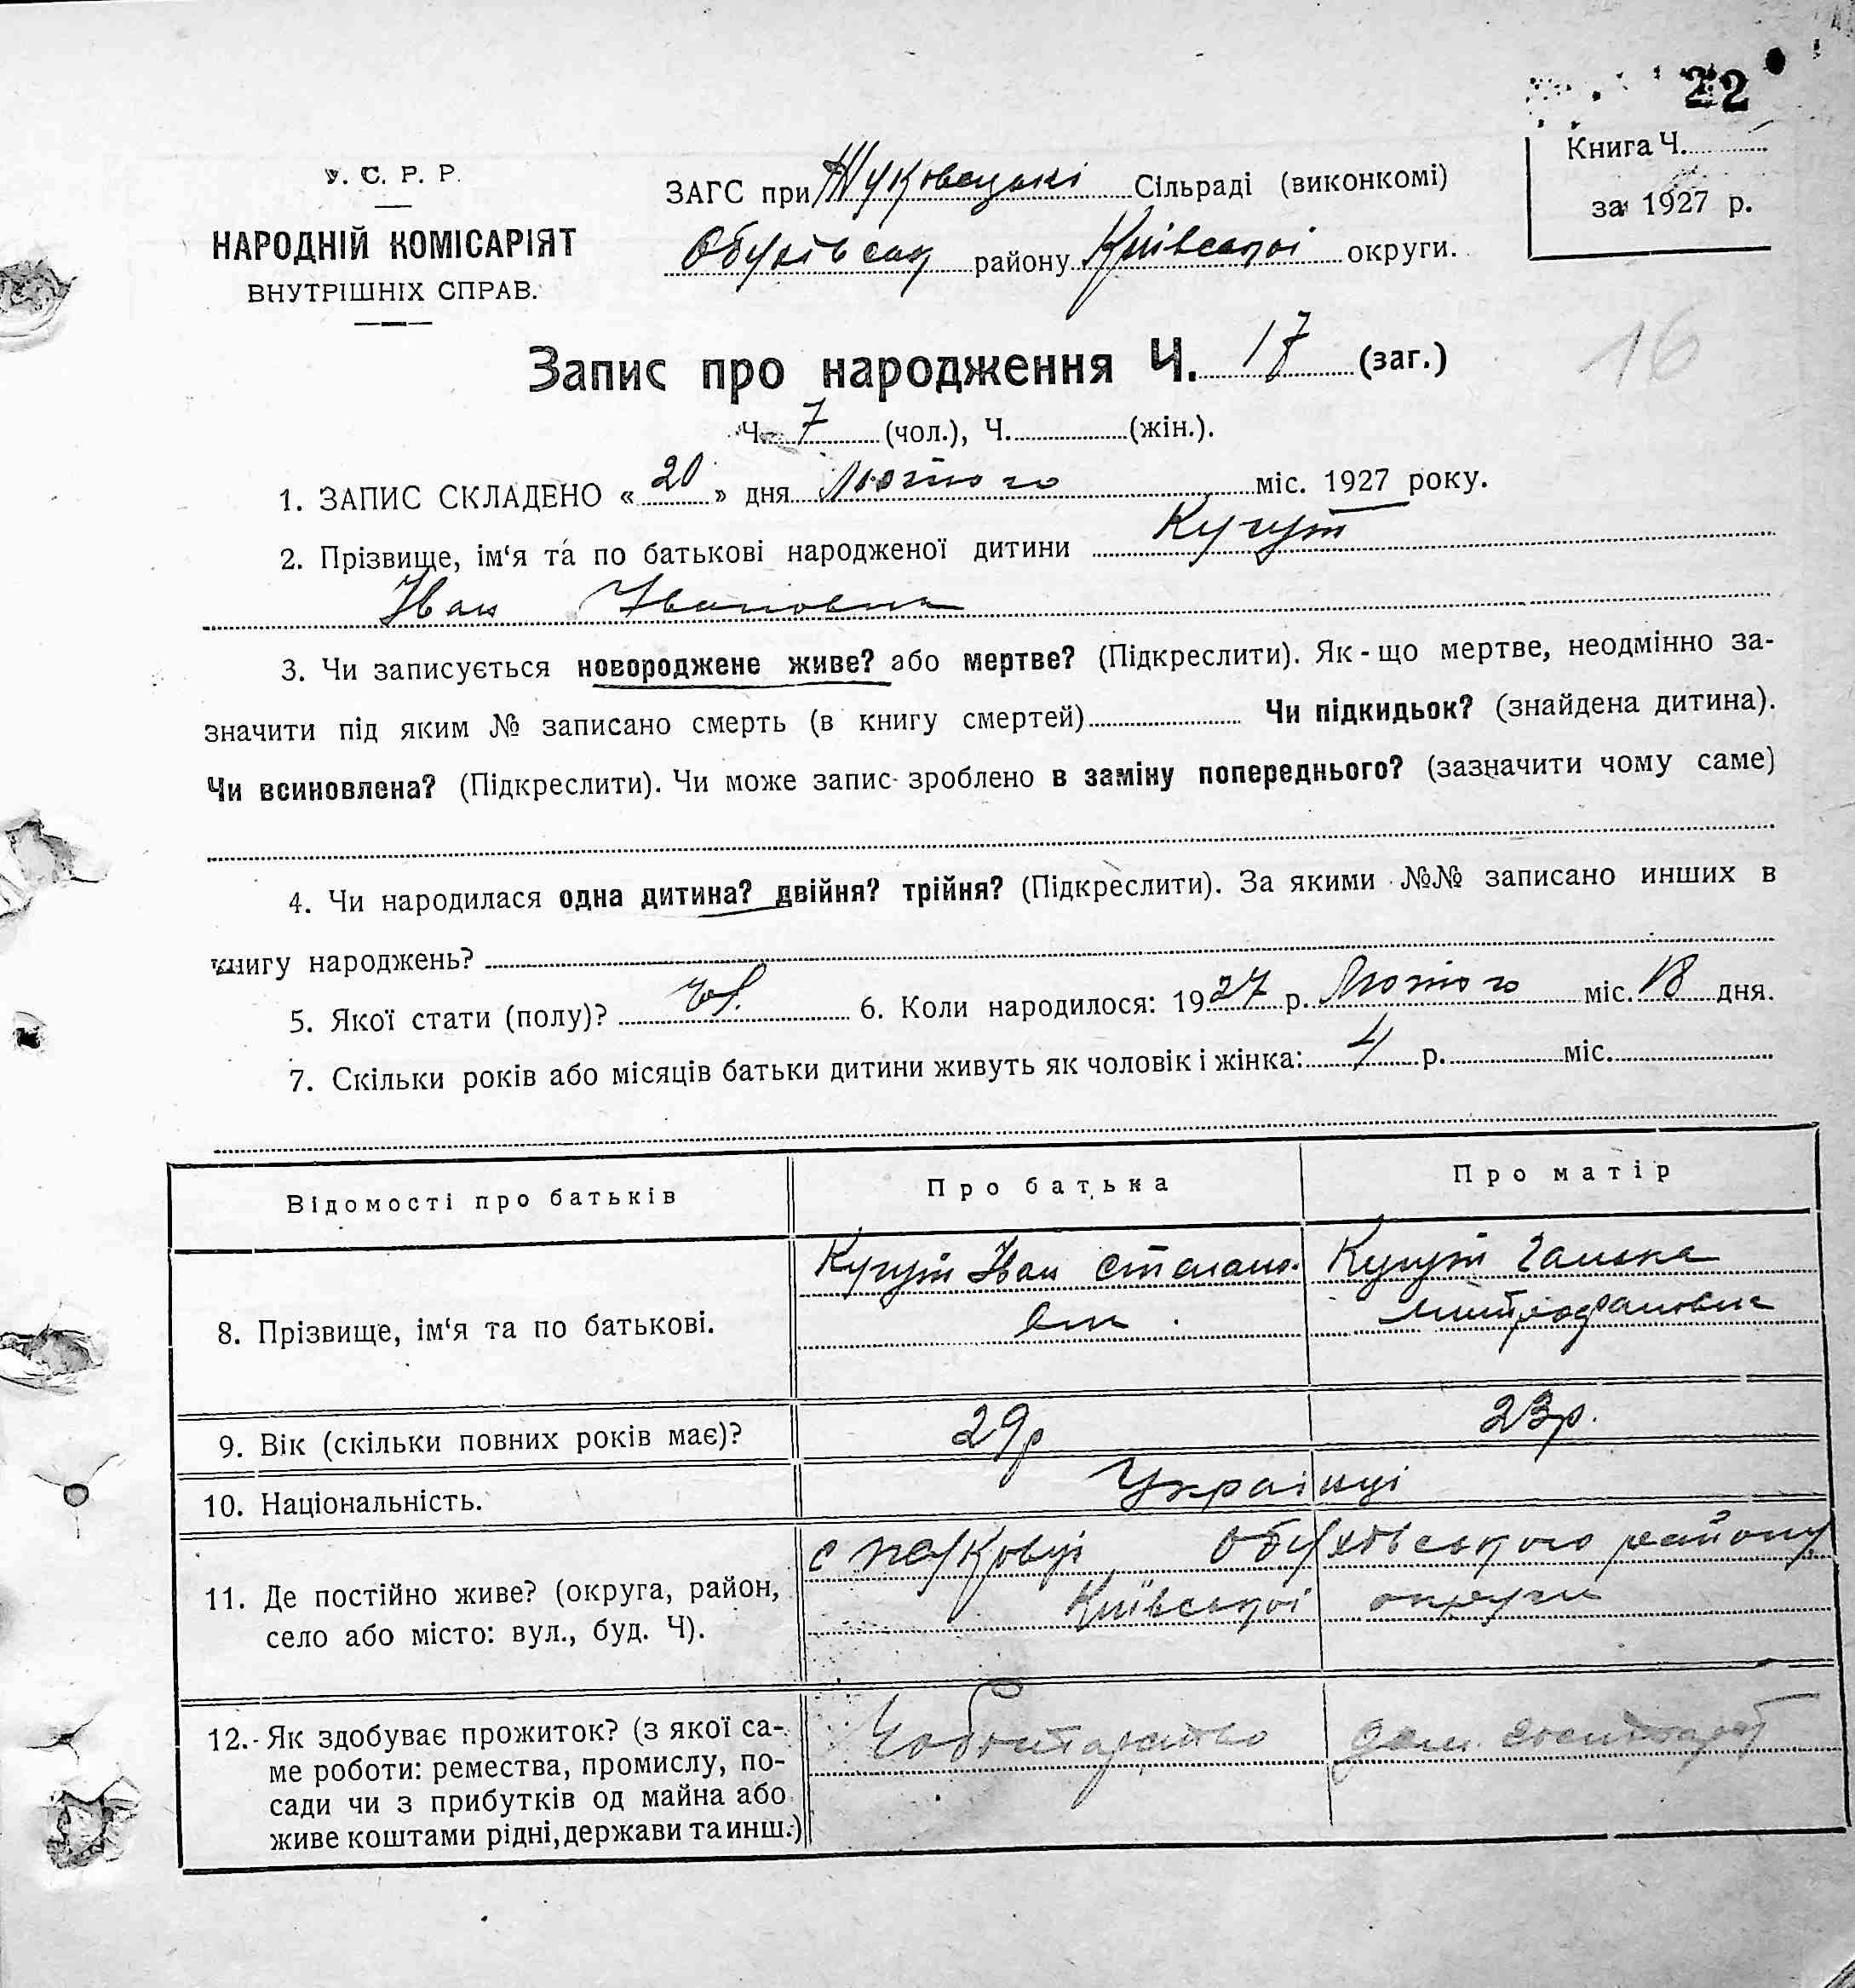 22
Книга Ч.
за 1927 р.
У. С. Р. Р.
НАРОДНІЙ КОМІСАРІЯТ
ВНУТРІШНІХ СПРАВ.
ЗАГС при Жуковецькі Сільраді (виконкомі)
району Київської округи.
16
Запис про народження Ч. 17 (заг.)
Ч. 7 (чол.), Ч. (жін.).
1. ЗАПИС СКЛАДЕНО « 20 » дня Лютого міс. 1927 року.
2. Прізвище, ім‘я та по батькові народженої дитини Кугут
Іван Іванович
3. Чи записується новороджене живе? або мертве? (Підкреслити). Як-що мертве, неодмінно за-
значити під яким № записано смерть (в книгу смертей) Чи підкидьок? (знайдена дитина).
Чи всиновлена? (Підкреслити). Чи може запис зроблено в заміну попереднього? (зазначити чому саме)
4. Чи народилася одна дитина? двійня? трійня? (Підкреслити). За якими №№ записано инших в
книгу народжень?
5. Якої стати (полу)? чол. 6. Коли народилося: 1927 р. Лютого міс. 18 дня.
7. Скільки років або місяців батьки дитини живуть як чоловік і жінка: 4 р. міс.
Відомості про батьків
Про батька
Про матір
8. Прізвище, ім‘я та по батькові.
Кугут Іван
Кугут
9. Вік (скільки повних років має)?
29р
23р.
10. Національність.
Українці
11. Де постійно живе? (округа, район,
село або місто: вул., буд. Ч).
с Жуковці Обухівського району
Київської округи
12. Як здобуває прожиток? (з якої са-
ме роботи: ремества, промислу, по-
сади чи з прибутків од майна або
живе коштами рідні, держави та инш.)
Чоботарство
дом.